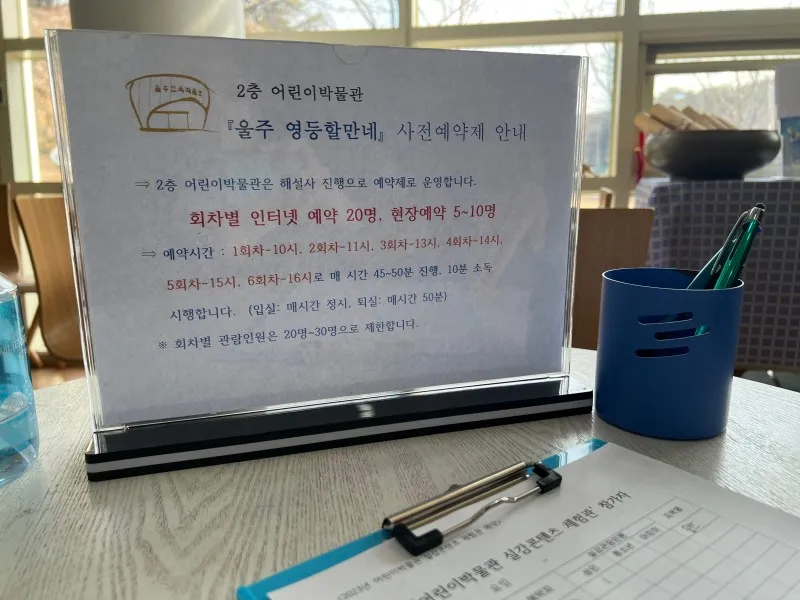 2층 어린이박물관
『울주 영등할만네』 사전예약제 안내
⇒ 2층 어린이박물관은 해설사 진행으로 예약제로 운영합니다.
회차별 인터넷 예약 20명, 현장예약 5~10명
⇒ 예약시간 : 1회차-10시, 2회차-11시, 3회차-13시, 4회차-14시,
5회차-15시, 6회차-16시로 매 시간 45~50분 진행, 10분 소독
시행합니다. (입실: 매시간 정시, 퇴실: 매시간 50분)
※ 회차별 관람인원은 20명~30명으로 제한합니다.
<2023년 어린이박물관 실감콘텐츠 체험관
어린이박물관 실감콘텐츠 체험관' 참가자